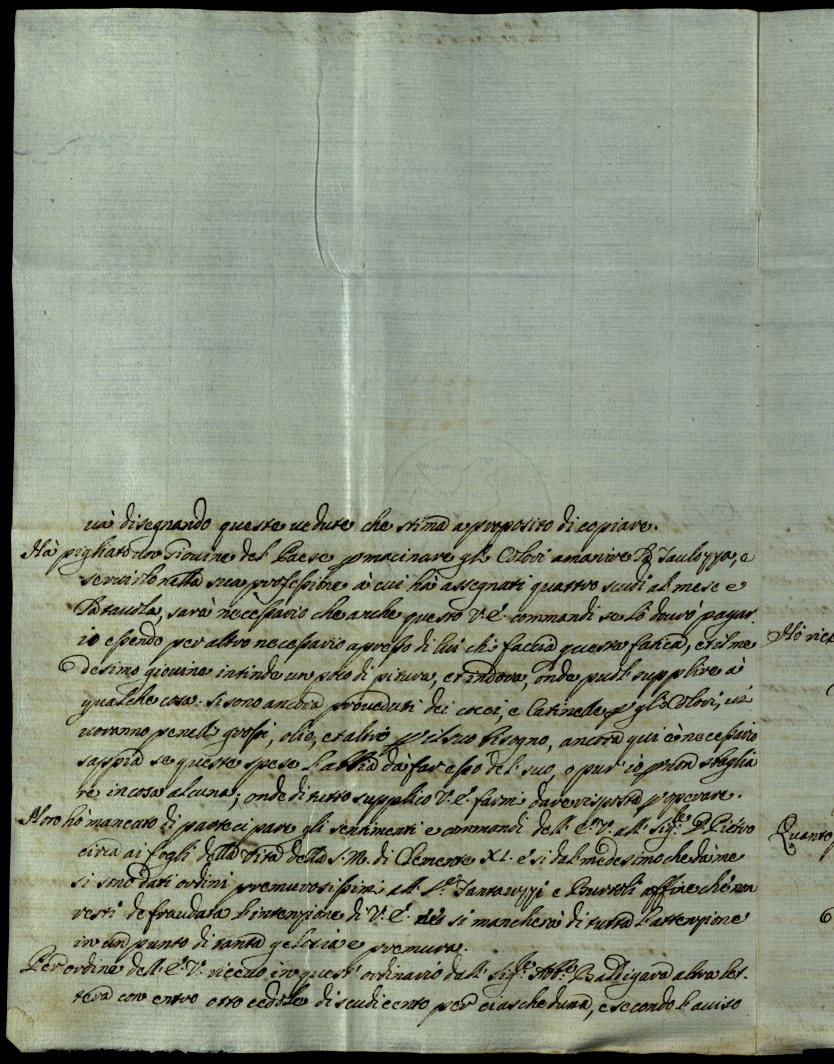 và disegnando queste vedute che stima a proposito di copiare.
Hà pigliato un Giovine del Paese p macinare gli Colori ammanire la Tavolozza, e
servirlo nella sua professione à cui hà assegnati quattro scudi al mese e
la tavola, sarà necessario che anche questo V.E. commandi se lò dovrò pagar
io essendo per altro necessario apresso di lui chi faccia questa fatica, et il me
desimo giovine intende un poco di pitura, et indora, onde puol supplire à
qualche cosa. si sono ancora proveduti dei cocci, e Catinelle p gli Colori, vi
voranno penelli grossi, olio, et altro p il suo bisogno, ancora qui è necessario
sappia se queste spese l'abbia dà far esso del suo, o pur' io p non sbaglia
re in cosa alcuna; onde di tutto supplico V.E. farmi dare risposta p operare.
Non hò mancato di partecipare gli sentimenti e commandi dell' E.V. all' Sig.r D. Pietro
circa ai fogli della Vita della S.M. di Clemente XI. e si dal medesimo che dà me
si sono dati ordini premurosissimi alli Sri Fantauzzi e Bartoli affine che non
resti defraudata l'intenzione di V.E. si mancherà di tutta l'attenzione
in un punto di tanta gelosia e premura.
Per ordine dell' E.V. ricevo in quest' ordinario dall' Sig.r Abb.e Baldigara altra let-
tera con entro otto cedole di scudi cento per ciascheduna, e secondo l'aviso
Hò rice
Quanto